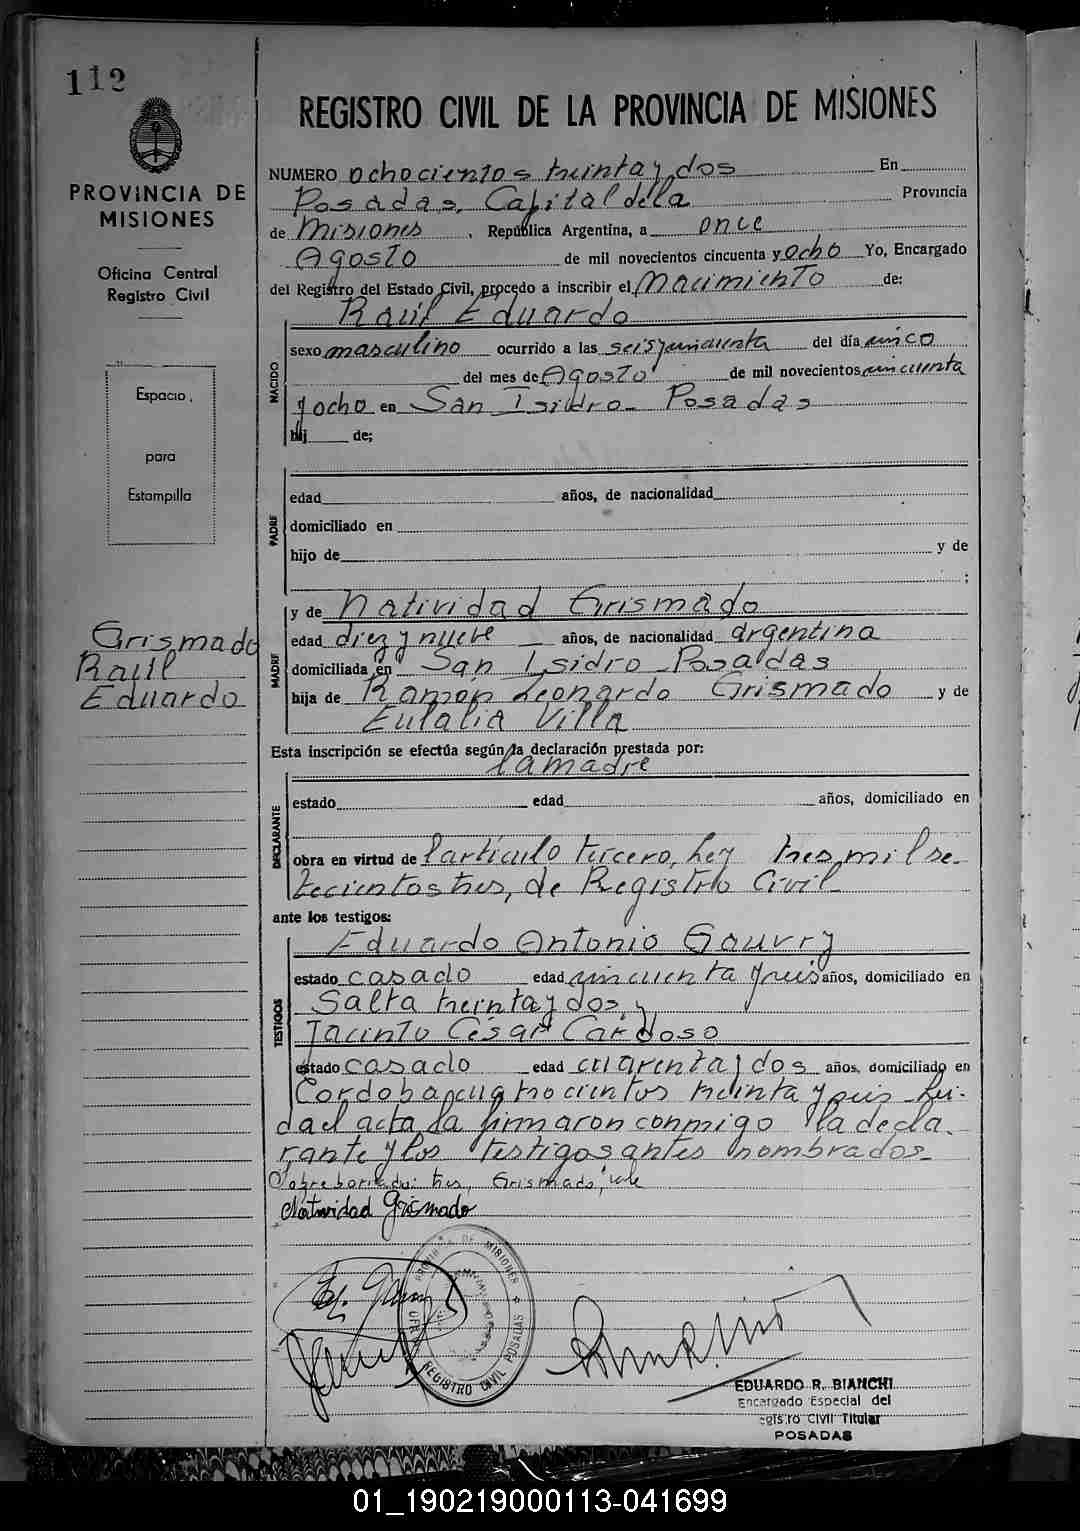 112
PROVINCIA DE
MISIONES
Oficina Central
Registro Civil
Espacio
para
Estampilla
Grismado
Raúl
Eduardo
REGISTRO CIVIL DE LA PROVINCIA DE MISIONES
NUMERO ochocientos treinta y dos En
Posadas, Capital de la Provincia
de Misiones, República Argentina, a once
Agosto de mil novecientos cincuenta y ocho Yo, Encargado
del Registro del Estado Civil, procedo a inscribir el nacimiento de:
Raúl Eduardo
NACIDO
sexo masculino ocurrido a las seis y cincuenta del día cinco
del mes de Agosto de mil novecientos cincuenta
y ocho en San Isidro - Posadas
hij de;
PADRE
edad años, de nacionalidad
domiciliado en
hijo de y de
;
MADRE
y de Natividad Grismado
edad diez y nueve años, de nacionalidad argentina
domiciliada en San Isidro - Posadas
hija de Ramón Leonardo Grismado y de
Eulalia Villa
Esta inscripción se efectúa según la declaración prestada por:
la madre
DECLARANTE
estado edad años, domiciliado en
obra en virtud de l artículo tercero, ley tres mil se-
tecientos tres, de Registro Civil
ante los testigos:
TESTIGOS
Eduardo Antonio Gauvry
estado casado edad cincuenta y seis años, domiciliado en
Salta treinta y dos, y
Jacinto César Cardoso
estado casado edad cuarenta y dos años, domiciliado en
Córdoba cuatrocientos treinta y seis Leí-
da el acta la firmaron conmigo la decla-
rante y los testigos antes nombrados-
Sobre borrado: tres, Grismado, vale
Natividad Grismado
PROVINCIA DE MISIONES
REGISTRO CIVIL POSADAS
EDUARDO R. BIANCHI
Encargado Especial del
Registro Civil Titular
POSADAS
01_190219000113-041699